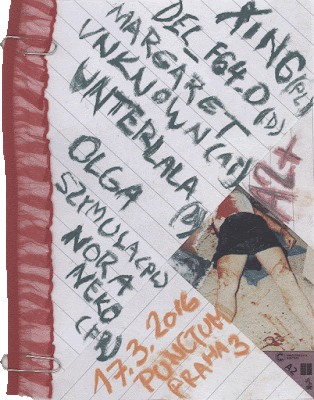 XING (PL)
DEL_F64.0 (D)
MARGARET
UNKNOWN (AT)
UNTERLALA (D)
OLGA
SZYMULA (PL)
NORA
NEKO
(FR)
A2+
17.3.2016
PUNCTUM
PRAHA 3
A2